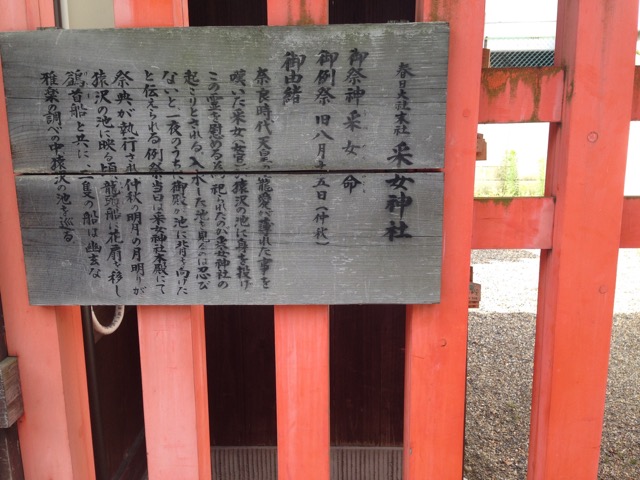 春日大社末社 采女神社
御祭神 采女命
御例祭 旧八月十五日(仲秋)
御由緒
奈良時代天皇の寵愛が薄れた事を
嘆いた采女(女官)が猿沢の池に身を投げ
この霊を慰める為、祀られたのが采女神社の
起こりとされる。入水した池を見るのは忍び
ないと一夜のうちに御殿が池に背を向けた
と伝えられる。例祭当日は采女神社本殿にて
祭典が執行され、仲秋の明月の月明りが
猿沢の池に映る頃、龍頭船に花扇を移し
鷁首船と共に、二隻の船は幽玄な
雅楽の調べの中、猿沢の池を巡る。